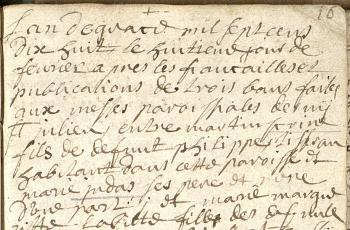 16
Lan de grace mil sept cens
dix huit le huitieme jour de
fevrier apres les fiancailles et
publications de trois bans faites
aux messes paroissiales de
St julien entre martin
fils de defunt philippe
habitant dans cette paroisse et
marie judas ses pere et mere
d'une part; et marie marque
fille des defunts